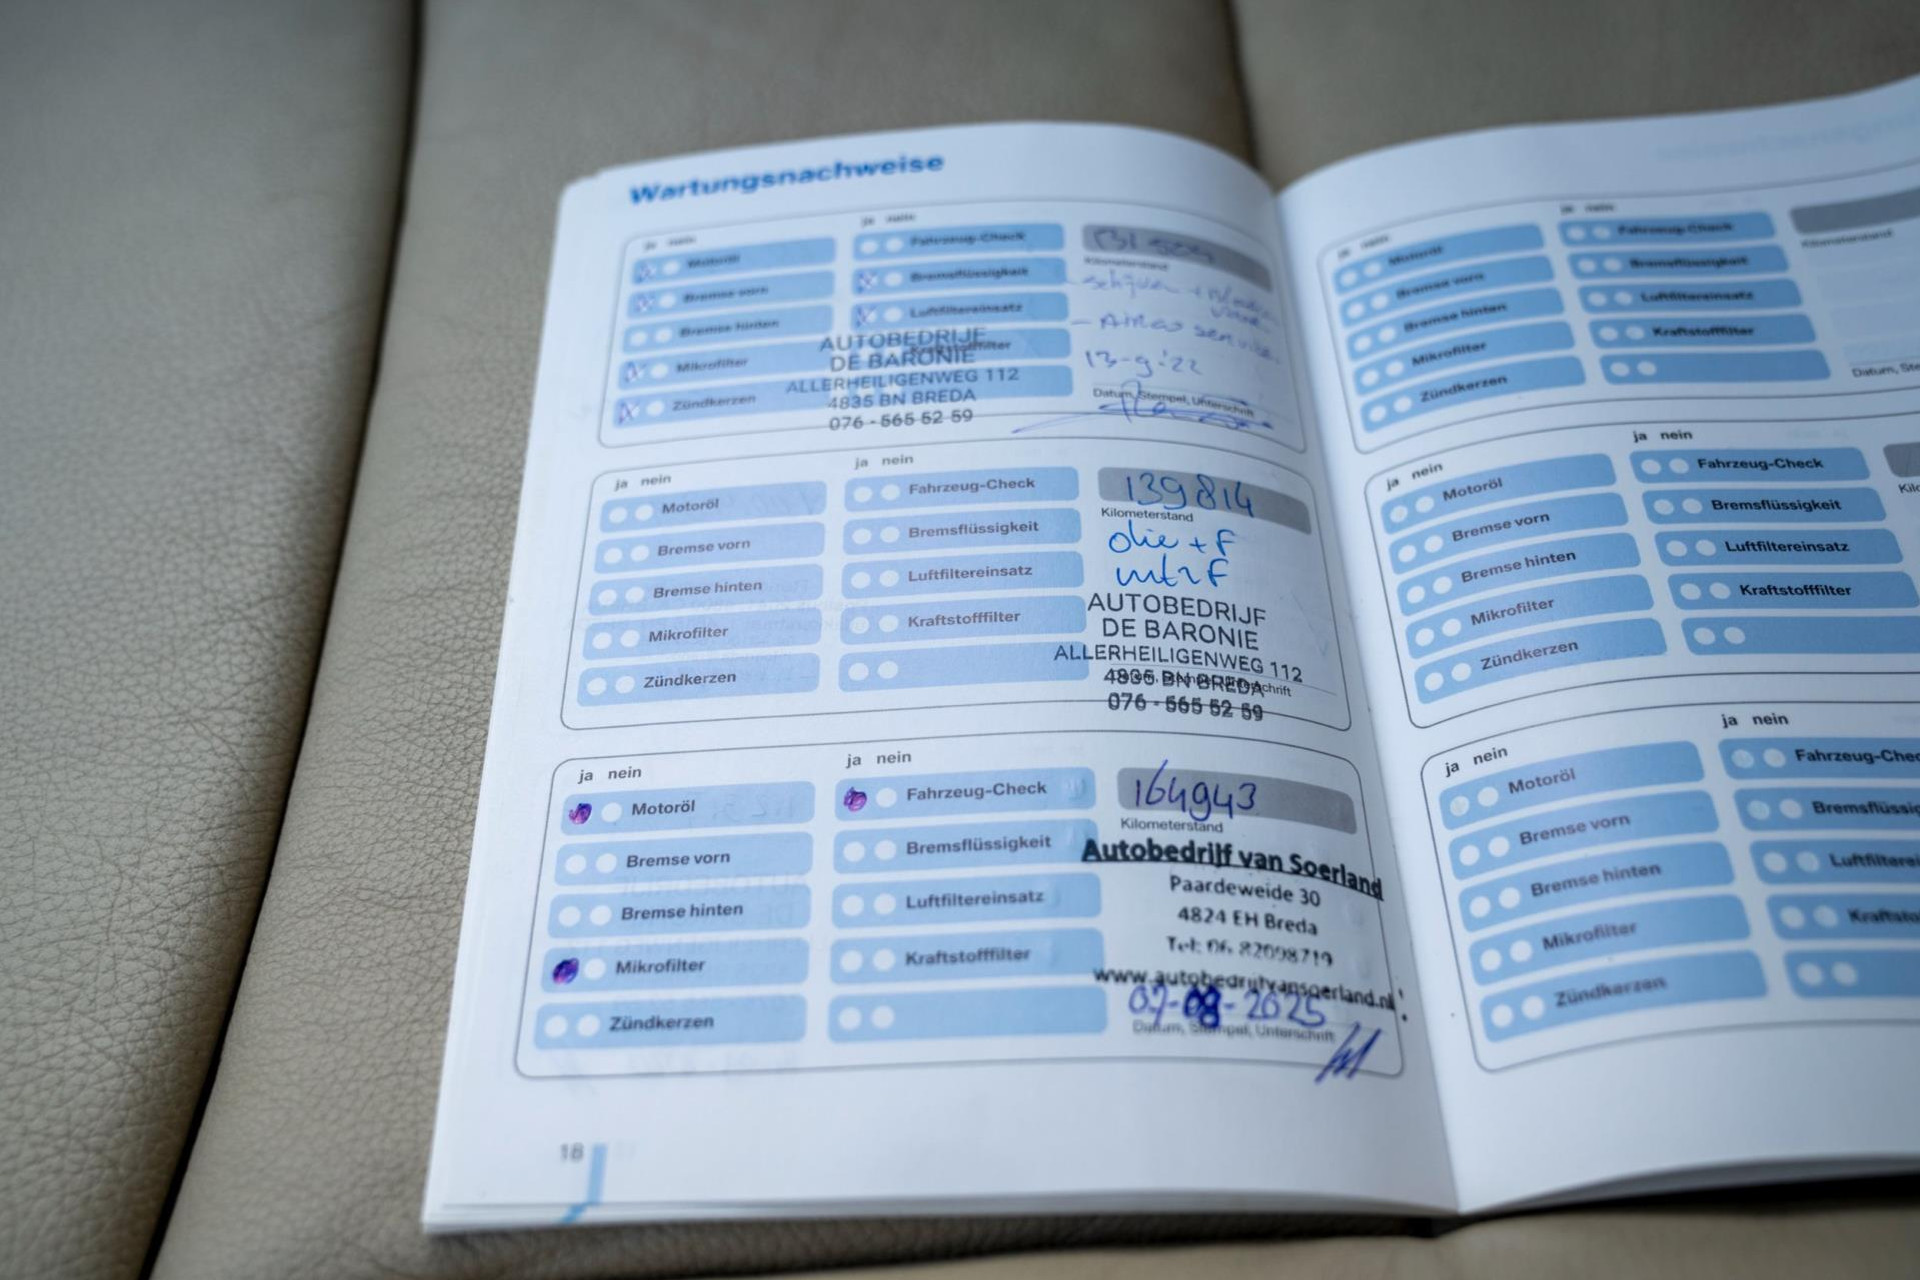 Wartungsnachweise
ja nein
Motoröl
Bremse vorn
Bremse hinten
Mikrofilter
Zündkerzen
ja nein
Fahrzeug-Check
Bremsflüssigkeit
Luftfiltereinsatz
Kraftstofffilter
Kilometerstand
13-9-'22
Datum, Stempel, Unterschrift
AUTOBEDRIJF
DE BARONIE
ALLERHEILIGENWEG 112
4835 BN BREDA
076 - 565 52 59
ja nein
Motoröl
Bremse vorn
Bremse hinten
Mikrofilter
Zündkerzen
ja nein
Fahrzeug-Check
Bremsflüssigkeit
Luftfiltereinsatz
Kraftstofffilter
139814
Kilometerstand
olie + F
AUTOBEDRIJF
DE BARONIE
ALLERHEILIGENWEG 112
4835 BN BREDA
076 - 565 52 59
Datum, Stempel, Unterschrift
ja nein
Motoröl
Bremse vorn
Bremse hinten
Mikrofilter
Zündkerzen
ja nein
Fahrzeug-Check
Bremsflüssigkeit
Luftfiltereinsatz
Kraftstofffilter
164943
Kilometerstand
Autobedrijf van Soerland
Paardeweide 30
4824 EH Breda
Tel: 06 82098719
www.autobedrijfvansoerland.nl
07-08-2025
Datum, Stempel, Unterschrift
18
ja nein
Motoröl
Bremse vorn
Bremse hinten
Mikrofilter
Zündkerzen
ja nein
Fahrzeug-Check
Bremsflüssigkeit
Luftfiltereinsatz
Kraftstofffilter
Kilometerstand
Datum, Ste
ja nein
Motoröl
Bremse vorn
Bremse hinten
Mikrofilter
Zündkerzen
ja nein
Fahrzeug-Check
Bremsflüssigkeit
Luftfiltereinsatz
Kraftstofffilter
Kilo
ja nein
Motoröl
Bremse vorn
Bremse hinten
Mikrofilter
Zündkerzen
ja nein
Fahrzeug-Chec
Bremsflüssig
Luftfilterei
Kraftsto